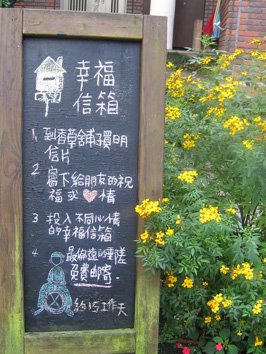 幸福
信箱
1 到香草舖子買明
信片
2 寫下給朋友的祝
福或❤情
3 投入不同心情
的幸福信箱
4
免費郵寄.
約15工作天